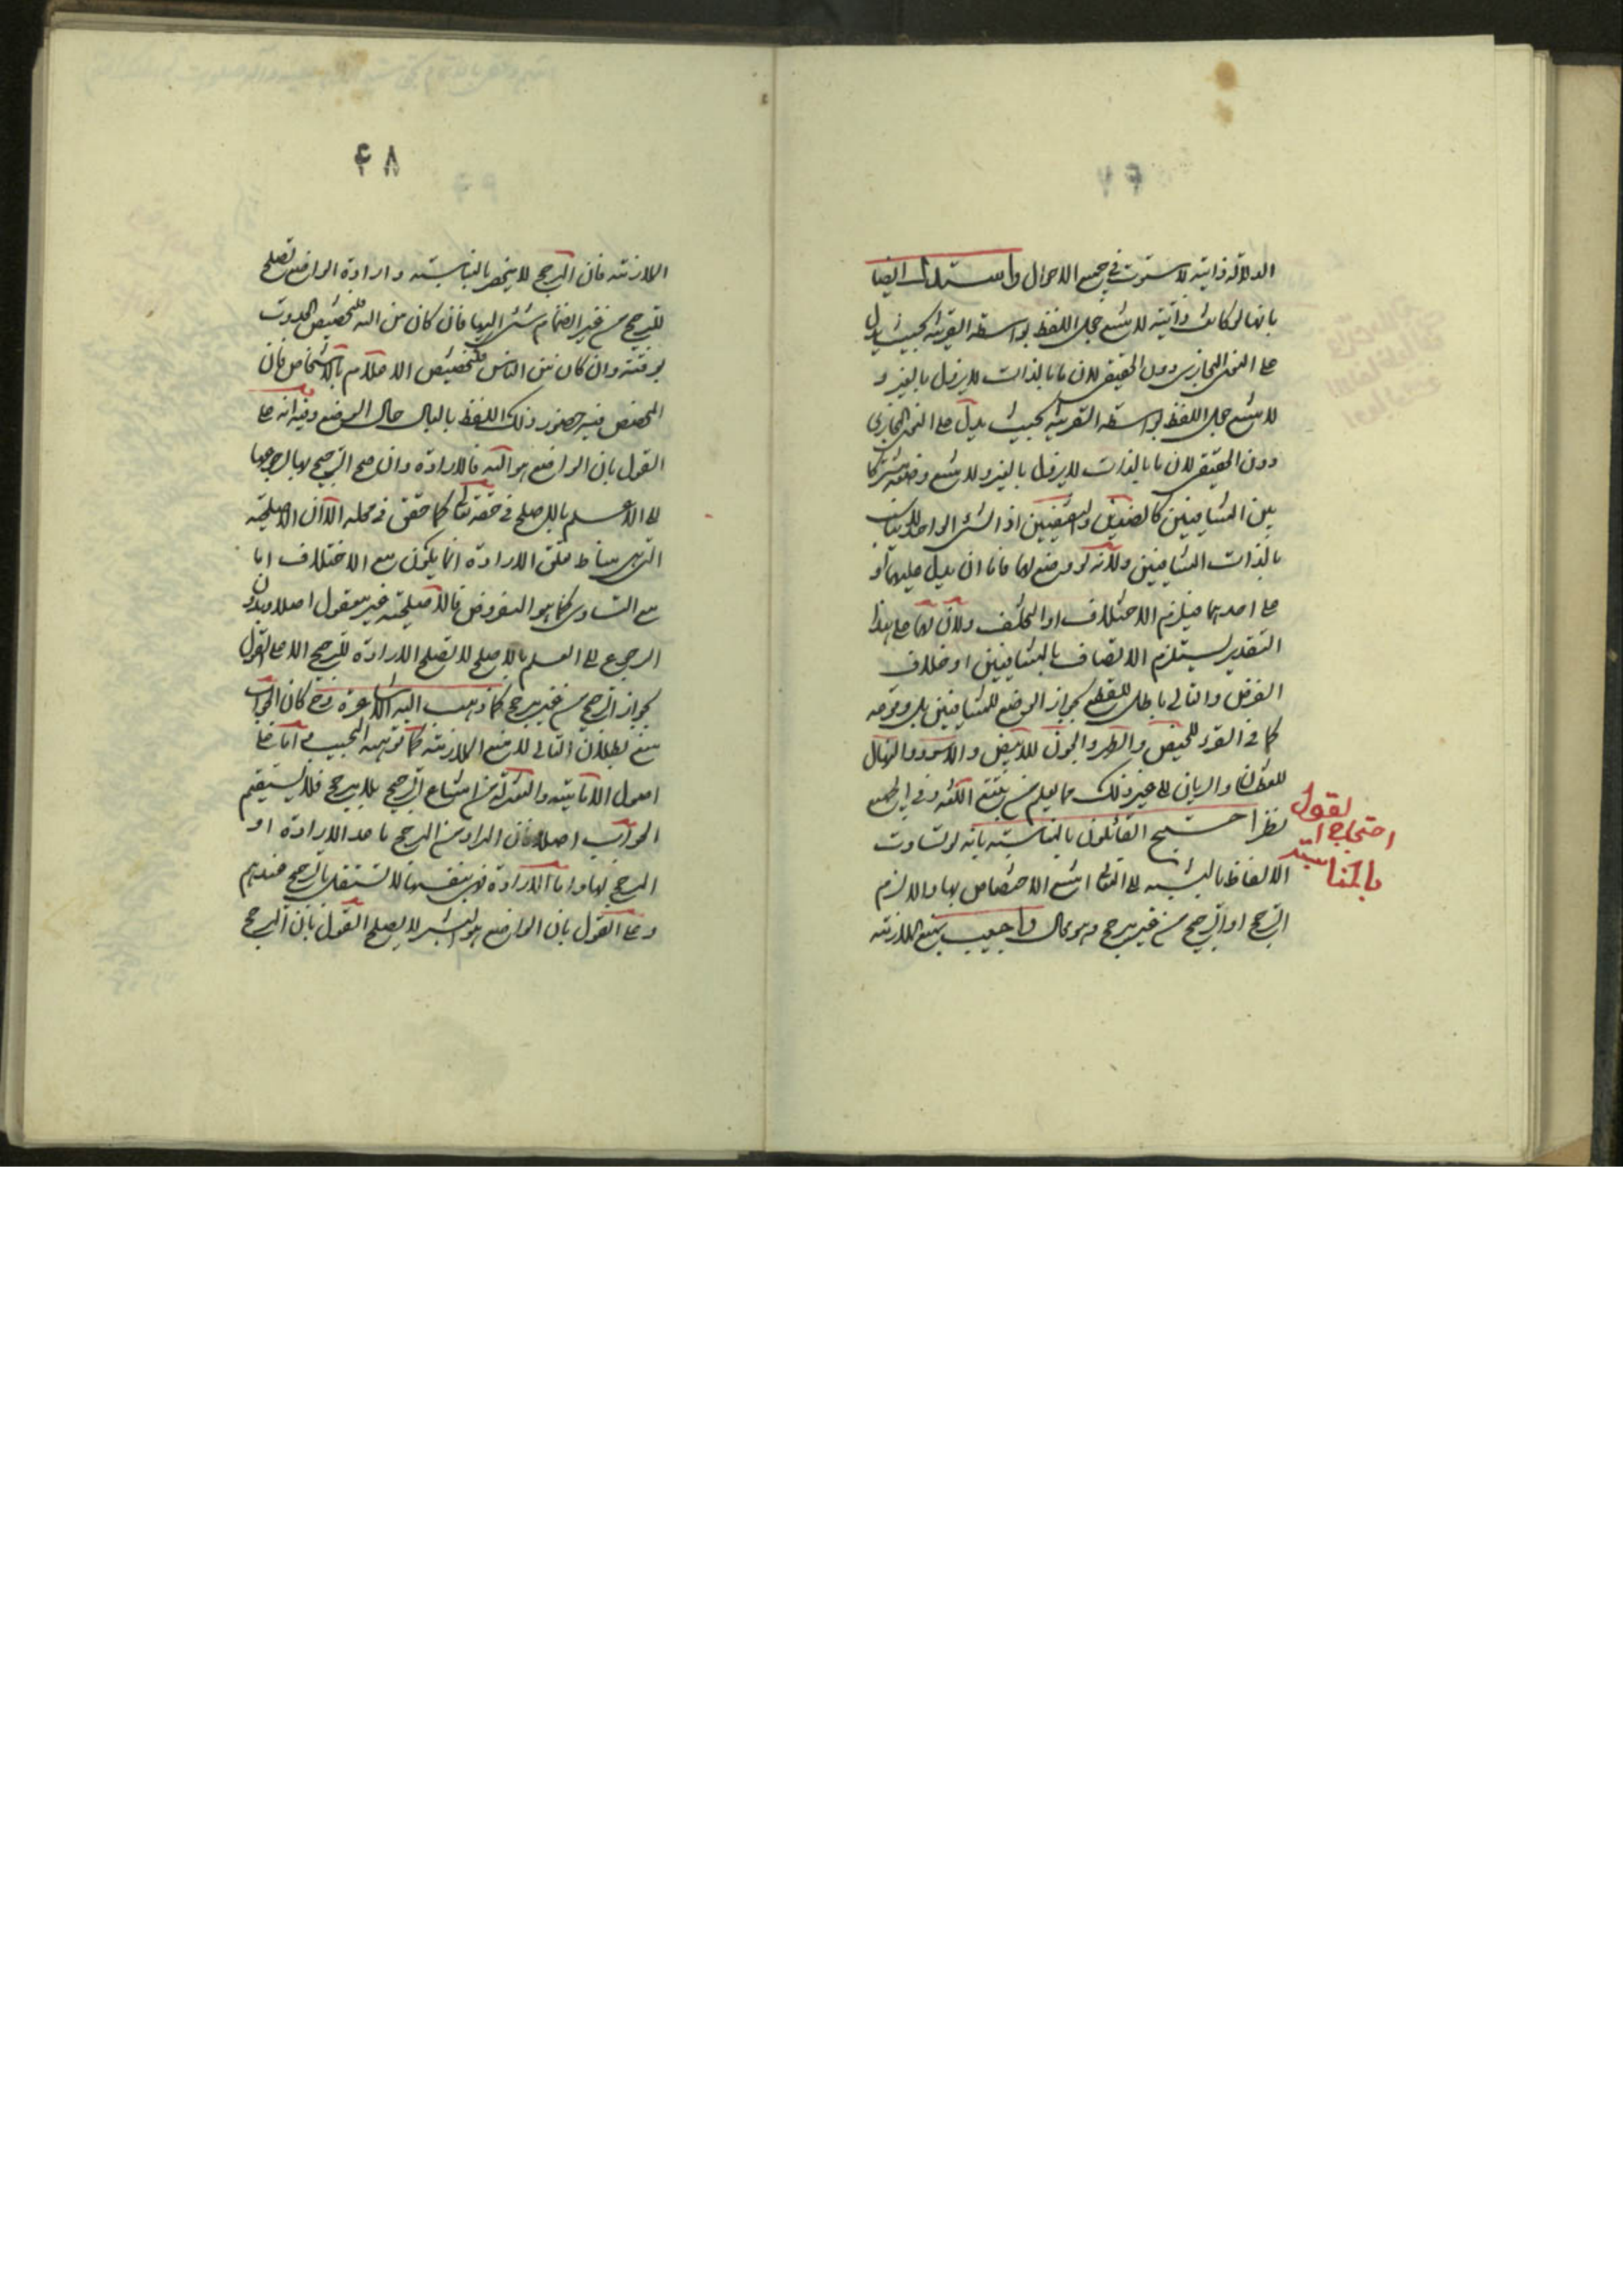 الدلالة ذاتية لاستوت في جميع الاحوال واستدل ايضا
بانها لو كانت ذاتية لامتنع جعل اللفظ بواسطة القرينة بحيث يدل
على المعنى المجازي دون الحقيقي لان ما بالذات لا يزول بالغير و
لامتنع جعل اللفظ بواسطة القرينة بحيث يدل على المعنى المجازي
دون الحقيقي لان ما بالذات لا يزول بالغير ولامتنع وضعه مشتركا
بين المتنافيين كالضدين والنقيضين اذ الشيء الواحد لا يناسب
بالذات المتنافيين ولانه لو وضع لهما فاما ان يدل عليهما او
على احدهما فيلزم الاختلاف او التخلف ولان لهما على هذا
التقدير يستلزم الاتصاف بالمتنافيين او خلاف
الفرض والتالي باطل للقطع بجواز الوضع للمتنافيين بل وقوعه
كما في القرء للحيض والطهر والجون للابيض والاسود والناهل
للعطشان والريان الى غير ذلك مما يعلم من تتبع اللغة وفي الجميع
نظر احتج القائلون بالمناسبة بانه لو تساوت
الالفاظ بالنسبة الى المعاني امتنع الاختصاص بها والا لزم
الترجح او الترجيح من غير مرجح وهو محال واجيب بمنع الملازمة
احتجاج القول
بالمناسبة
۴۸
الملازمة فان المرجح لا ينحصر بالمناسبة وارادة الواضع تصلح
للترجيح من غير انضمام شيء اليها فان كان من الله فكتخصيص الحدوث
بوقته وان كان من الناس فكتخصيص الاعلام بالاشخاص فان
المخصص فيه حضور ذلك اللفظ بالبال حال الوضع وفيه انه على
القول بان الواضع هو الله فالارادة وان صح الترجيح بها لرجوعها
الى العلم بالاصلح في حقه تعالى كما حقق في محله الا ان الاصلحية
التي هي مناط تعلق الارادة انما يكون مع الاختلاف اما
مع التساوي كما هو المفروض فالاصلحية غير معقول اصلا وبدون
الرجوع الى العلم بالاصلح لا تصلح الارادة للترجيح الا على القول
بجواز الترجيح من غير مرجح كما ذهب اليه الاشاعرة وح كان الجواب
منع بطلان التالي لا منع الملازمة كما توهمه المجيب واما على
اصول الامامية والمعتزلة من امتناع الترجيح بلا مرجح فلا يستقيم
الجواب اصلا فان المراد من المرجح ما عدا الارادة او
المرجح لها واما الارادة فهي بنفسها لا تستقل بالترجيح عندهم
وعلى القول بان الواضع هو البشر لا يصلح القول بان المرجح